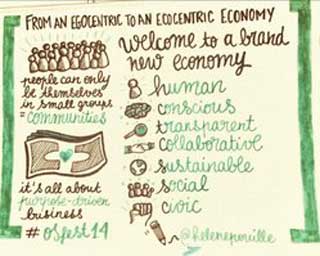 FROM AN EGOCENTRIC TO AN ECOCENTRIC ECONOMY
people can only
be themselves
in small groups
= communities
it's all about
purpose-driven
business
# OSfest14
Welcome to a brand
new economy
human
conscious
transparent
collaborative
sustainable
social
civic
@helenepouille